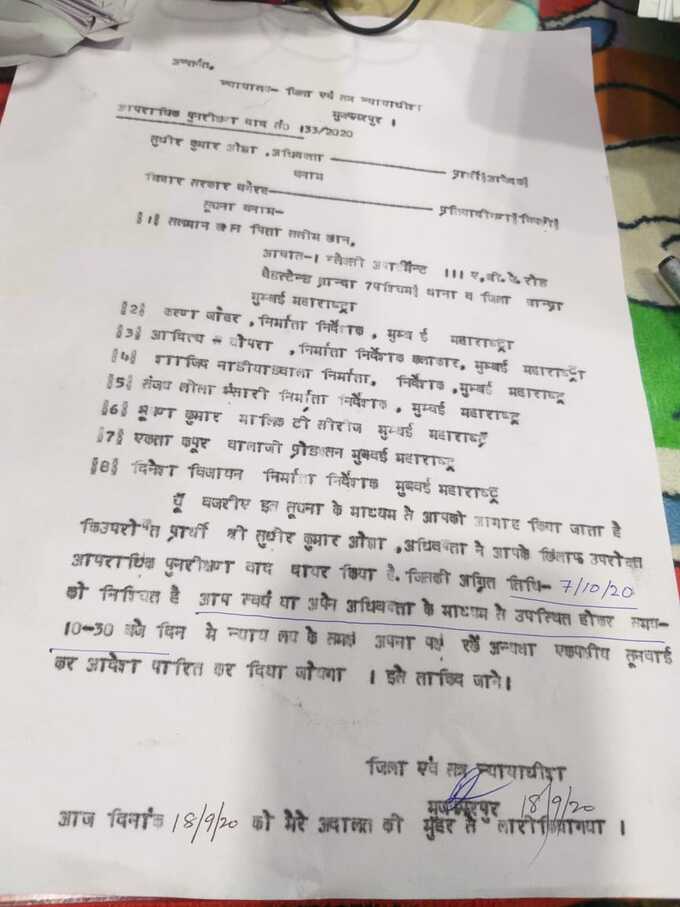 न्यायालय- जिला एवं सत्र न्यायाधीश
मुजफ्फरपुर ।
आपराधिक पुनरीक्षण वाद सं0 133/2020
सुधीर कुमार ओझा ,अधिवक्ता ------ प्रार्थी
बनाम
बिहार सरकार वगैरह------
सूचना बनाम-
§1§ सलमान खान पिता सलीम खान,
आवास-1 ग्लेक्सी अपार्टमेन्ट 111 ए,बी.जे रोड
बैडस्टेन्ड बान्द्रा 7पश्चिम§ थाना व जिला बान्द्रा
मुम्बई महाराष्ट्रा
§2§ करण जोहर , निर्माता निर्देशक , मुम्बई महाराष्ट्रा
§3§ आदित्य चोपरा , निर्माता निर्देशक कलाकार, मुम्बई महाराष्ट्रा
§4§ साजिद नाडीयाडवाला निर्माता, निर्देशक ,मुम्बई महाराष्ट्र
§5§ संजय लीला भंसारी निर्माता निर्देशक , मुम्बई महाराष्ट्र
§6§ भूषण कुमार मालिक टी सीरीज मुम्बई महाराष्ट्र
§7§ एकता कपूर बालाजी प्रोडक्सन मुम्बई महाराष्ट्र
§8§ दिनेश विजायन निर्माता निर्देशक मुम्बई महाराष्ट्र
यूँ बजरीए इस सूचना के माध्यम से आपको आगाह किया जाता है
किउपरोक्त प्रार्थी श्री सुधीर कुमार ओझा ,अधिवक्ता ने आपके खिलाफ उपरोक्त
आपराधिक पुनरीक्षण वाद दायर किया है. जिसकी अग्रित तिथि- 7/10/20
को निश्चित है आप स्वयं या अपने अधिवक्ता के माध्यम से उपस्थित होकर समय-
10-30 बजे दिन मे न्यायालय के समक्ष अपना पक्ष रखें अन्यथा एकपक्षीय सूनवाई
कर आदेश पारित कर दिया जायेगा । इसे ताकिद जाने।
जिला एवं सत्र न्यायाधीश
मुजफ्फरपुर 18/9/20
आज दिनांक 18/9/20 को मेरे अदालत की मुहर से जारीकियागया ।